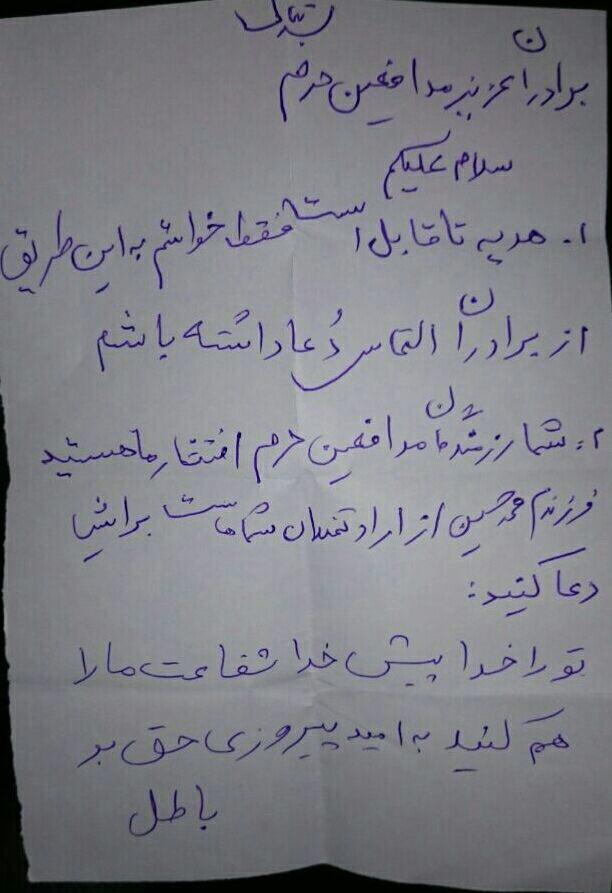 برادران عزیز مدافعین حرم
سلام علیکم
۱. هدیه ناقابل است فقط خواستم به این طریق
از برادران التماس دُعا داشته باشم
۲: شما رزمندگان مدافعین حرم افتخار ما هستید
فرزندم محمدحسین از ارادتمندان شماست برایش
دعا کنید:
تو را خدا پیش خدا شفاعت ما را
هم کنید به امید پیروزی حق بر
باطل